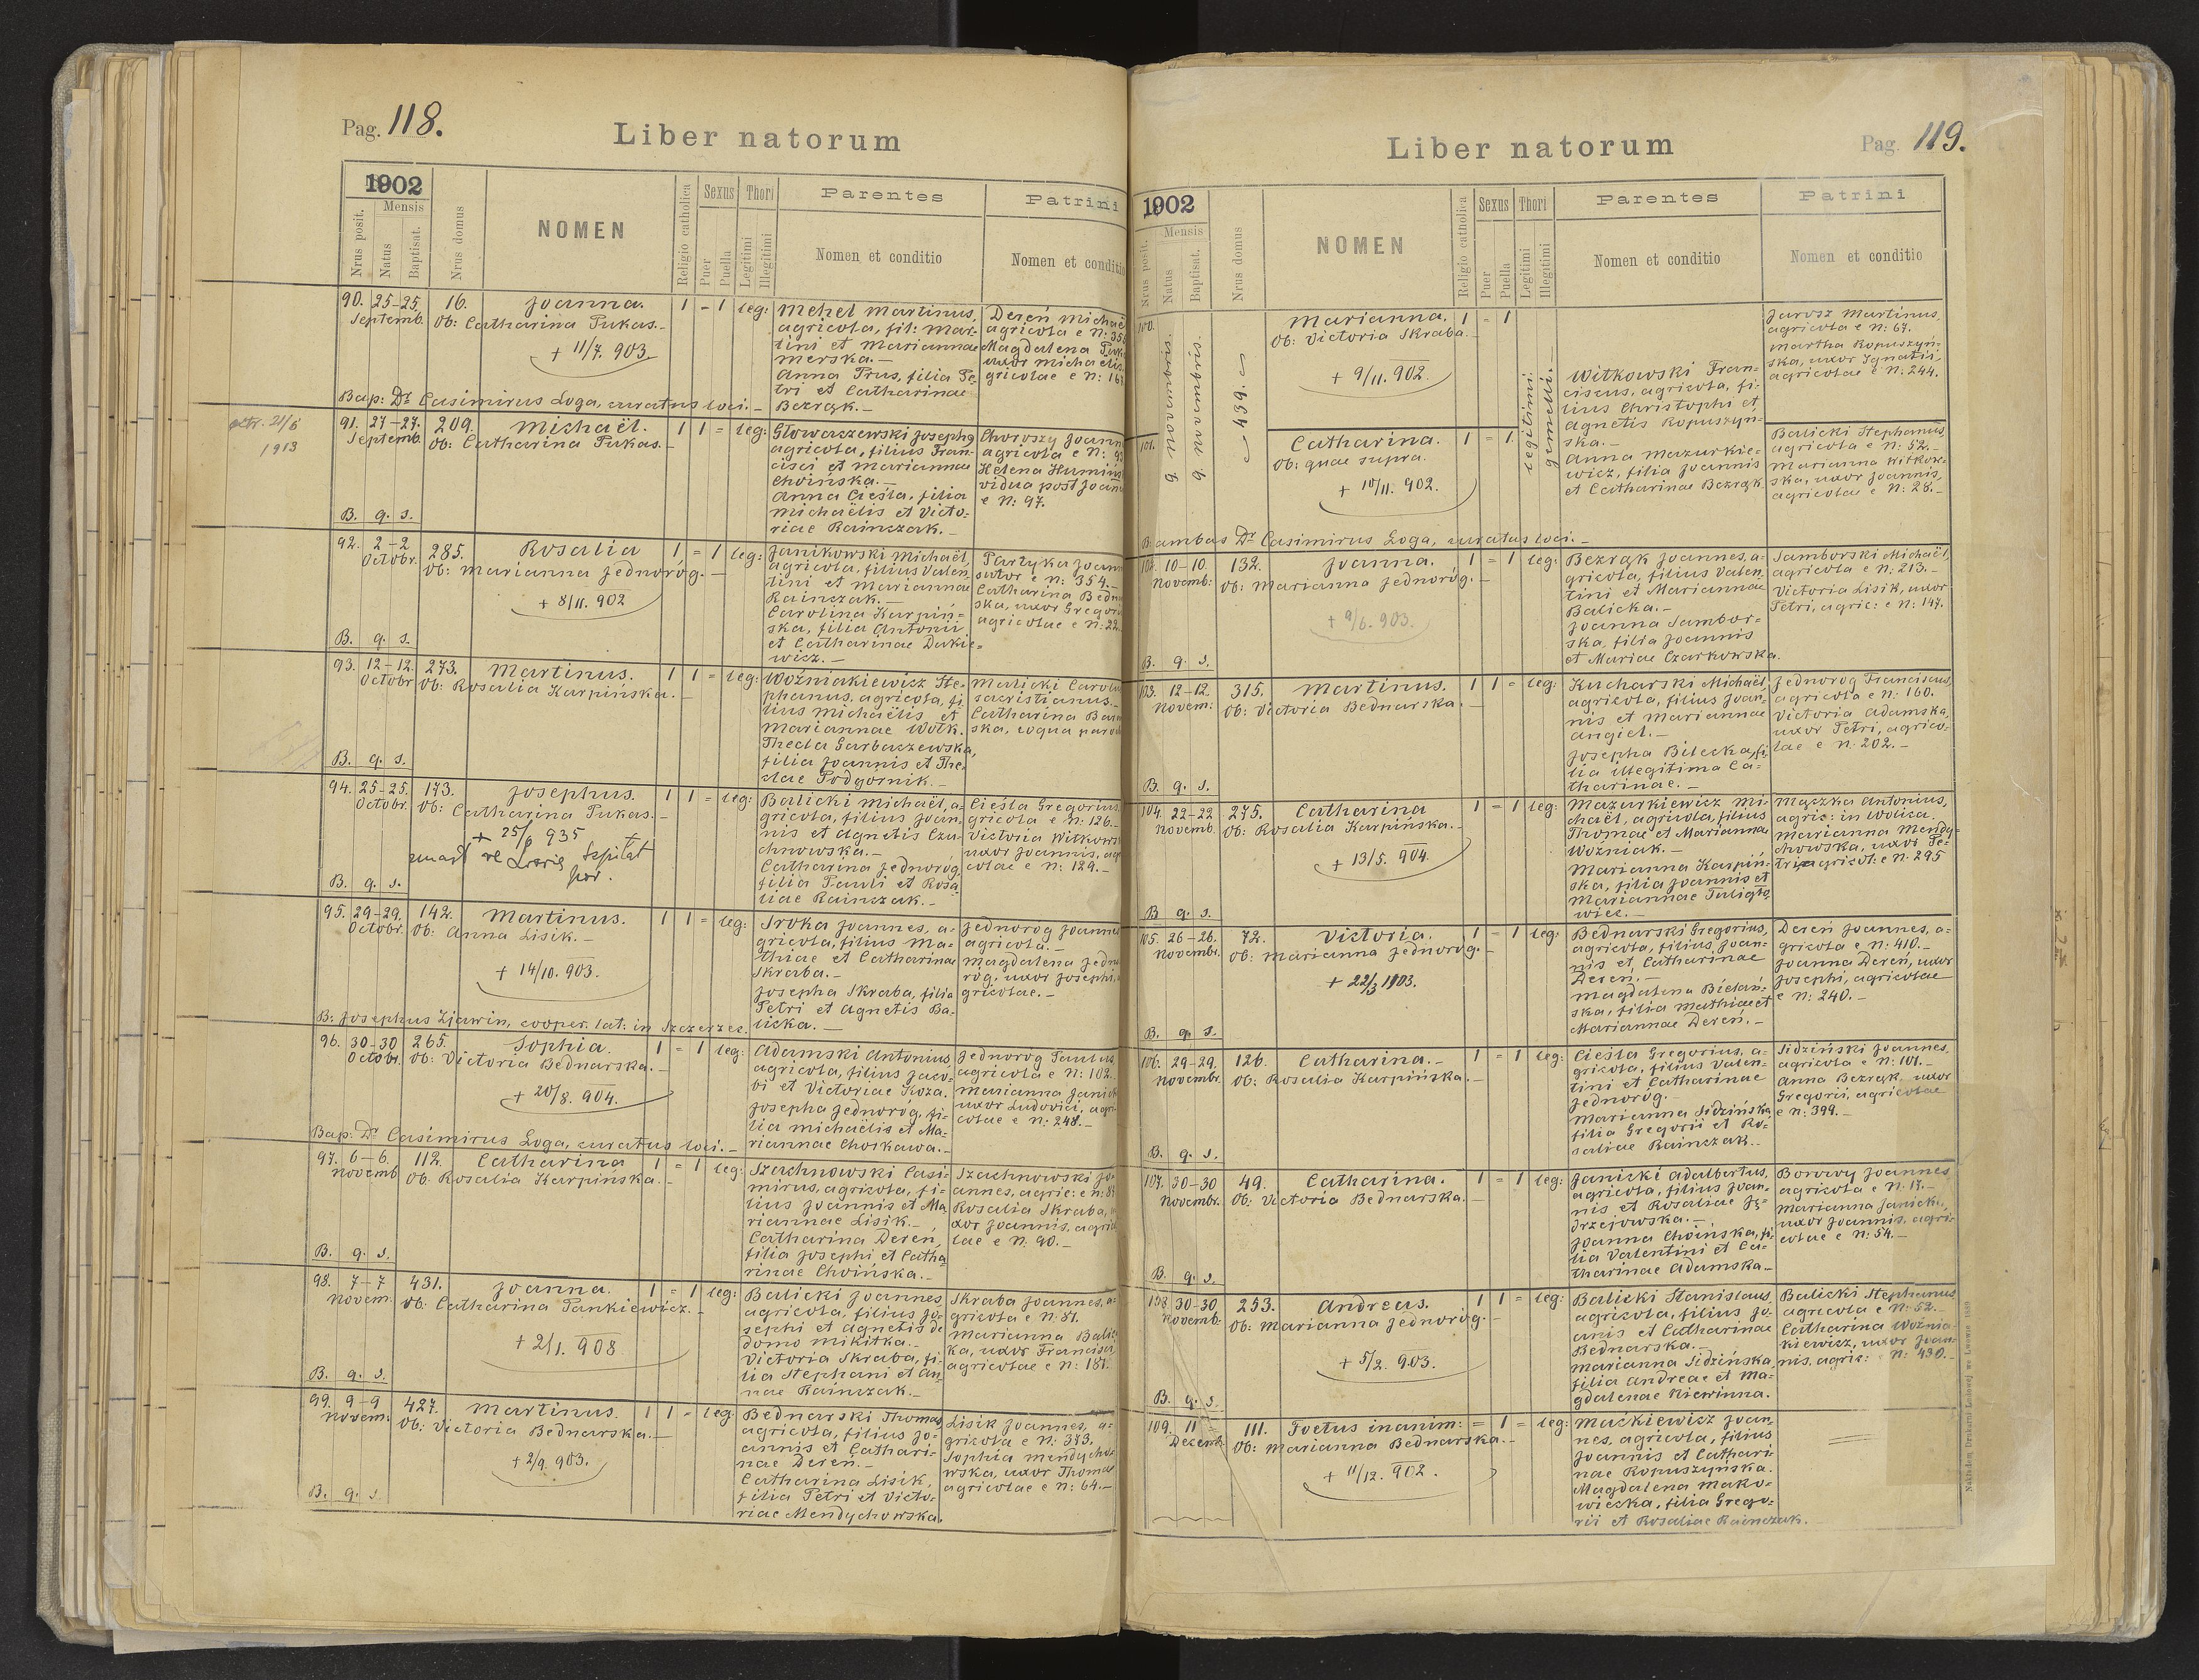 Pag. 118.
Liber natorum
1902
Mensis
Nrus posit.
Natus
Baptisat.
Nrus domus
NOMEN
Religio catholica
Sexus
Puer
Puella
Thori
Legitimi
Illegitimi
Parentes
Nomen et conditio
Patrini
Nomen et conditio
90. 25-25. Septemb. 16. Joanna. 1 = 1 leg:
Ob: Catharina Pukas.-
+ 11/7. 903.
Mehel Martinus,
agricola, fil: Mar-
tini et Mariannae
merska.-
Anna Prus, filia Pe-
tri et Catharinae
Bezrąk.-
Dereń Michaël
agricola e N: 35
Magdalena
uxor Michaëlis
gricolae e N: 167
Bap: Dr. Casimirus Loga, curatus loci.-
21/6
1913
91. 27-27. Septemb. 209. Michaël. 1 1 = leg:
Ob: Catharina Pukas.-
Głowaczewski Josephg
agricola, filius Fran-
cisci et Mariannae
Choińska.-
Anna Cieśla, filia
Michaëlis et Victo-
riae Rainczak.-
Choroszy Joann
agricola e N: 93
Helena Humińs
vidua post Joann
e N: 97.
B. q. s.
92. 2-2 Octobr. 285. Rosalia 1 = 1 leg:
Ob: Marianna Jednoróg.-
+ 8/11. 902
Janikowski Michaël,
agricola, filius Valen-
tini et Mariannae
Rainczak.-
Carolina Karpiń-
ska, filia Antonii
et Catharinae Dukie-
wicz.-
Partyka Joann
sutor e N: 354.-
Catharina Bedn
ska, uxor Gregorii
agricolae e N: 22
B. q. s.
93. 12-12. Octobr 273. Martinus. 1 1 = leg:
Ob: Rosalia Karpińska.-
Woźniakiewicz Ste-
phanus, agricola, fi-
lius Michaëlis et
Mariannae Wołk.
Thecla Garbaczewska,
filia Joannis et The-
clae Podgornik.-
Malicki Carolu
sacristianus.-
Catharina Bar
ska, coqua paroch
B. q. s.
94. 25-25. Octobr. 173. Josephus. 1 1 = leg:
Ob: Catharina Pukas.-
+ 25/6 935
Balicki Michaël, a-
gricola, filius Joan-
nis et Agnetis Czu-
chnowska.-
Catharina Jednoróg,
filia Pauli et Rosa-
liae Rainczak.-
Cieśla Gregorius,
gricola e N: 126.-
Victoria Witkows
uxor Joannis, ag
colae e N: 129.-
B. q. s.
95. 29-29. Octobr. 142. Martinus. 1 1 = leg:
Ob: Anna Lisik.-
+ 14/10. 903.
Sroka Joannes, a-
gricola, filius Ma-
thiae et Catharinae
Skraba.-
Josepha Skraba, filia
Petri et Agnetis Ba-
licka.-
Jednorog Joannes
agricola.-
Magdalena Jedno
róg, uxor Josephi, a
gricolae.-
B: Josephus Ziawin, cooper. lat: in Szczerzec.
96. 30-30 Octobr. 265. Sophia. 1 = 1 leg:
Ob: Victoria Bednarska.-
+ 20/8. 904.
Adamski Antonius
agricola, filius Jaco-
bi et Victoriae Koza.
Josepha Jednoróg, fi-
lia Michaëlis et Ma-
riannae Chorkawa.-
Jednorog Paulus,
agricola e N: 102.
Marianna Janick
uxor Ludovici, agri-
colae e N: 248.-
Bap: Dr. Casimirus Loga, curatus loci.-
97. 6-6. Novemb 112. Catharina 1 = 1 leg:
Ob: Rosalia Karpińska.-
Szachnowski Casi-
mirus, agricola, fi-
lius Joannis et Ma-
riannae Lisik.-
Catharina Dereń,
filia Josephi et Catha-
rinae Choińska.-
Szachnowski Jo-
annes, agric: e N: 8
Rosalia Skraba, u
xor Joannis, agrico
lae e N: 90.-
B. q. s.
98. 7-7 Novem: 431. Joanna. 1 = 1 leg:
Ob: Catharina Pankiewicz.-
+ 2/1. 908
Balicki Joannes,
agricola, filius Jo-
sephi et Agnetis de
domo Mikitka.-
Victoria Skraba, fi-
lia Stephani et An-
nae Rainczak.-
Skraba Joannes, a-
gricola e N: 81.
Marianna Balic
ka, uxor Francisci,
agricolae e N: 181.
B. q. s.
99. 9-9 Novem: 427. Martinus. 1 1 = leg
Ob: Victoria Bednarska.-
+ 2/9. 903.
Bednarski Thomas,
agricola, filius Jo-
annis et Cathari-
nae Dereń.-
Catharina Lisik,
filia Petri et Victo-
riae Mendychowska.
Lisik Joannes, a-
gricola e N: 373.
Sophia Mendycho-
wska, uxor Thomae
agricolae e N: 64.-
B. q. s.
Liber natorum
Pag. 119.
1902
Mensis
Nrus posit.
Natus
Baptisat.
Nrus domus
NOMEN
Religio catholica
Sexus
Puer
Puella
Thori
Legitimi
Illegitimi
Parentes
Nomen et conditio
Patrini
Nomen et conditio
100. 9 novembris. 9 novembris. 439. Marianna. 1 - 1
Ob: Victoria Skraba.-
+ 9/11. 902.
legitimi: gemelli.-
Witkowski Fran-
ciscus, agricola, fi-
lius Christophi et
Agnetis Kopuszyń-
ska.-
Anna Mazurkie-
wicz, filia Joannis
et Catharinae Bezrąk
Jarosz Martinus,
agricola e N: 67.
Martha Kopuszyn-
ska, uxor Ignatii,
agricolae e N: 244.
101. Catharina. 1 - 1.
Ob: quae supra.-
+ 10/11. 902.
Balicki Stephanus,
agricola e N: 52.-
Marianna Witkow-
ska, uxor Joannis,
agricolae e N: 28.-
B: ambas Dr. Casimirus Loga, curatus loci.-
102. 10-10. Novemb: 132. Joanna. 1 = 1 leg:
Ob: Marianna Jednoróg.-
+ 9/6. 903.
Bezrąk Joannes, a-
gricola, filius Valen-
tini et Mariannae
Balicka.-
Joanna Sambor-
ska, filia Joannis
et Mariae Czarkowska.
Samborski Michaël,
agricola e N: 213.-
Victoria Lisik, uxor
Petri, agric: e N: 147.
B. q. s.
103. 12-12. Novem: 315. Martinus. 1 1 = leg:
Ob: Victoria Bednarska.-
Kucharski Michaël,
agricola, filius Joan-
nis et Mariannae
Angiel.-
Josepha Bilecka, fi-
lia illegitima Ca-
tharinae.-
Jednorog Franciscus,
agricola e N: 160.
Victoria Adamska,
uxor Petri, agrico-
lae e N: 202.-
B. q. s.
104. 22-22 Novemb. 275. Catharina 1 = 1 leg:
Ob: Rosalia Karpińska.-
+ 13/5. 904.
Mazurkiewicz Mi-
chaël, agricola, filius
Thomae et Mariannae
Woźniak.-
Marianna Karpiń-
ska, filia Joannis et
Mariannae Puligto-
wiec.-
Mączka Antonius,
agric: in Wolica.
Marianna Mendy-
chowska, uxor Pe-
tri, agricol: e N: 295
B q. s.
105. 26-26. Novembr. 72. Victoria. 1 = 1 leg:
Ob: Marianna Jednoróg.-
+ 22/3 1903.
Bednarski Gregorius,
agricola, filius Joan-
nis et Catharinae
Dereń.-
Magdalena Bielań-
ska, filia Mathiae et
Mariannae Dereń.-
Dereń Joannes, a-
gricola e N: 410.-
Joanna Dereń, uxor
Josephi, agricolae
e N: 240.-
B. q. s.
106. 29-29. Novembr. 126. Catharina.- 1 = 1 leg:
Ob: Rosalia Karpińska.-
Cieśla Gregorius, a-
gricola, filius Valen-
tini et Catharinae
Jednorog.-
Marianna Sidzińska,
filia Gregorii et Ro-
saliae Rainczak.-
Sidziński Joannes,
agricola e N: 101.-
Anna Bezrąk, uxor
Gregorii, agricolae
e N: 399.-
B. q. s.
107. 30-30 Novembr. 49. Catharina. 1 = 1 leg:
Ob: Victoria Bednarska.-
Janicki Adalbertus,
agricola, filius Joan-
nis et Rosaliae Ję-
drzejowska.-
Joanna Choińska, fi-
lia Valentini et Ca-
tharinae Adamska-
Borowy Joannes
agricola e N: 17.-
Marianna Janicki,
uxor Joannis, agri-
colae e N: 54.-
B. q. s.
108 30-30. Novemb. 253. Andreas. 1 1 = leg:
Ob: Marianna Jednoróg.-
+ 5/2. 903.
Balicki Stanislaus,
agricola, filius Jo-
anis et Catharinae
Bednarska.-
Marianna Sidzińska,
filia Andreae et Ma-
gdalenae Niewinna.
Balicki Stephanus
agricola e N: 52.-
Catharina Woźnia-
kiewicz, uxor Joan-
nis, agric: N: 430.-
B. q. s.
109. 11 Decemb. 111. Foetus inanim: = 1 = leg:
Ob: Marianna Bednarska.-
+ 11/12. 902.
Maćkiewicz Joan-
nes, agricola, filius
Joannis et Cathari-
nae Kopuszyńska.
Magdalena Mako-
wiecka, filia Grego-
rii et Rosaliae Rainczak.
Nakładem Drukarni Ludowej we Lwowie 1889